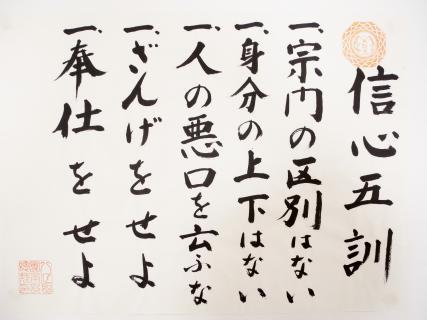 信心五訓
一、宗門の区別はない
一、身分の上下はない
一、人の悪口を云ふな
一、ざんげをせよ
一、奉仕をせよ